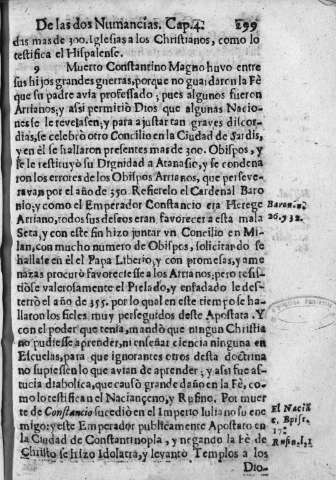 De las dos Numancias. Cap. 4. 299
das mas de 300. Iglesias a los Christianos, como lo
testifica el Hispalense.
9 Muerto Constantino Magno huvo entre
sus hijos grandes guerras, porque no guardaron la Fè
que su padre avia professado; pues algunos fueron
Arrianos, y assi permitiò Dios que algunas Nacio-
nes se le revelasen; y para ajustar tan graves discor-
dias, se celebrò otro Concilio en la Ciudad de Sardis,
y en èl se hallaron presentes mas de 300. Obispos, y
se le restituyo su Dignidad a Atanasio, y se condena
ron los errores de los Obispos Arrianos, que perseve-
ravan por el año de 350. Refierelo el Cardenal Baro
nio, y como el Emperador Constancio era Herege
Arriano, todos sus deseos eran favorecer a esta mala
Seta, y con este fin hizo juntar vn Concilio en Mi-
lan, con mucho numero de Obispos, solicitando se
hallase en èl el Papa Liberio, y con promesas, y ame
nazas procurò favoreciesse a los Arrianos; pero resis-
tiòse valerosamente el Prelado, y enfadado le des-
terrò el año de 355. por lo qual en este tiempo se ha-
llaron los fieles muy perseguidos deste Apostata. Y
con el poder que tenia, mandò que ningun Christia
no pudiesse aprender, ni enseñar ciencia ninguna en
Escuelas, para que ignorantes otros desta doctrina
no supiessen lo que avian de aprender; y assi fue as-
tucia diabolica, que causò grande daño en la Fè, co-
mo lo testifican el Naciançeno, y Rufino. Por muer
te de Constancio sucediò en el Imperio Iuliano su ene
migo: y este Emperador publicamente Apostato en
la Ciudad de Constantinopla, y negando la Fè de
Christo se hizo Idolatra, y levanto Templos a los
Dio-
Baron. n.
26. y 32.
El Naciã
c. Epist.
17.
Rufin. l. 1